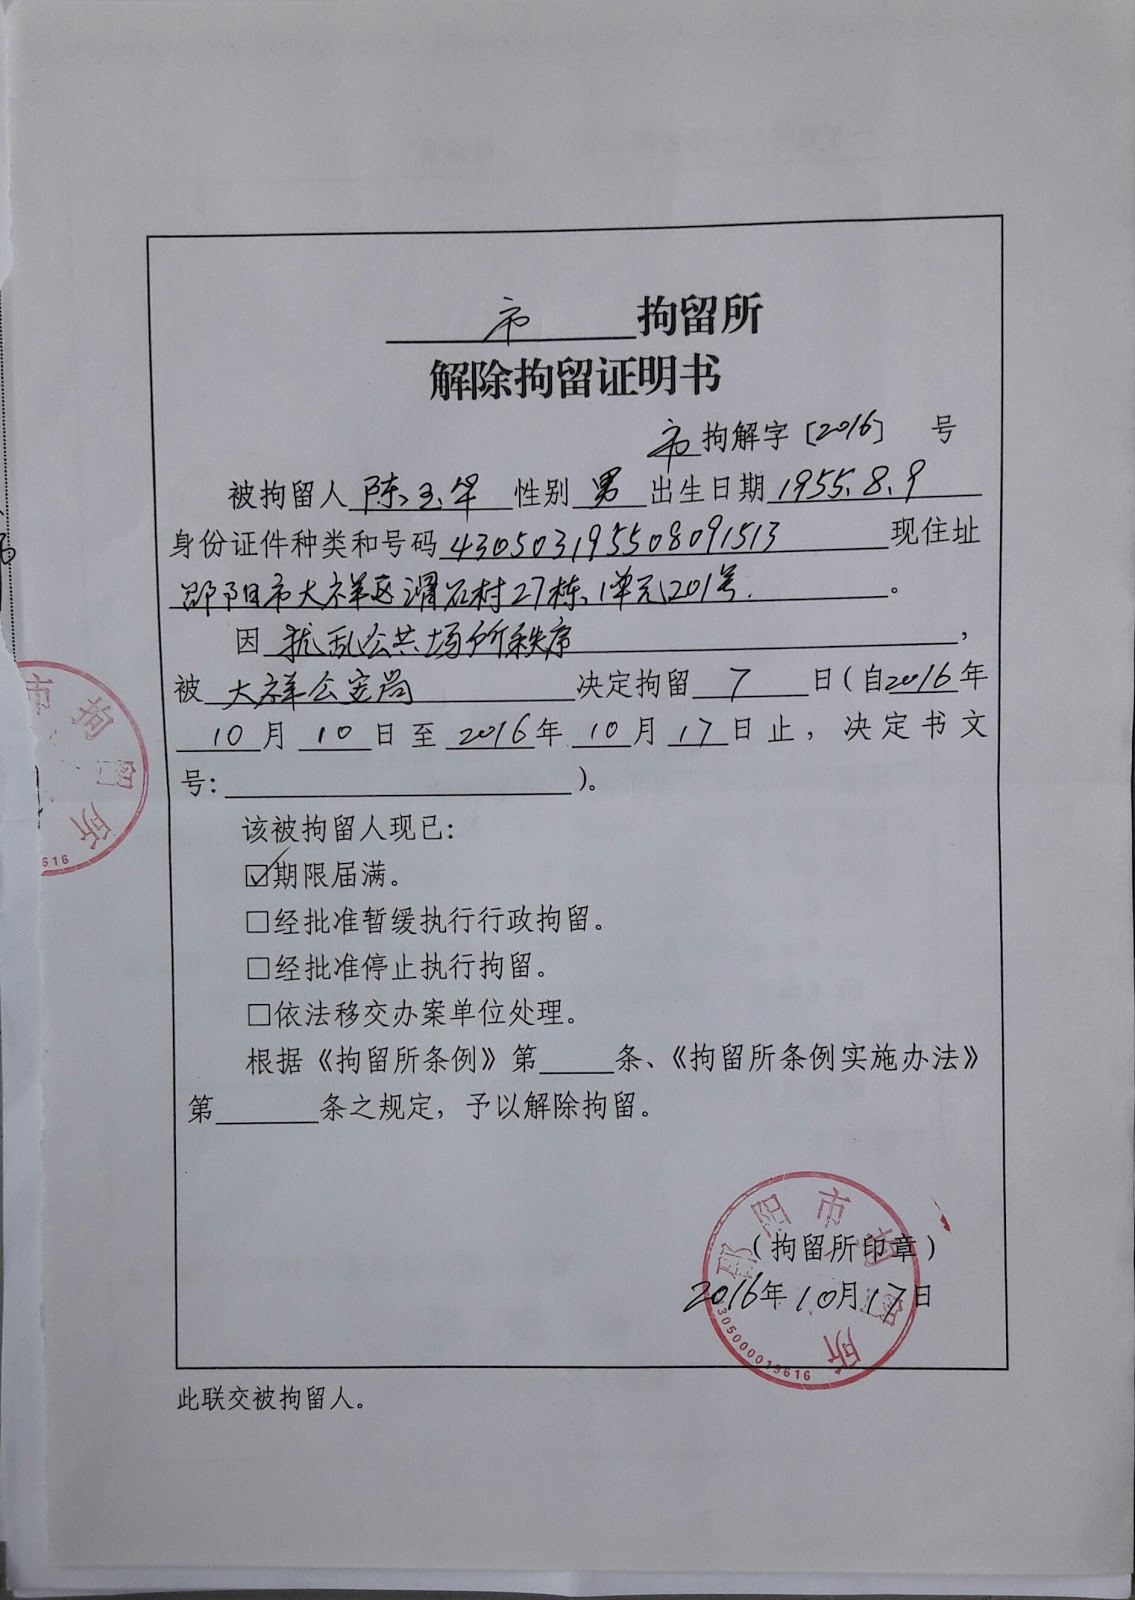 市拘留所
解除拘留证明书
市拘解字〔2016〕 号
被拘留人 陈玉华 性别 男 出生日期 1955.8.9
身份证件种类和号码 430503195508091513 现住址
邵阳市大祥区滑石村27栋1单元201号。
因 扰乱公共场所秩序,
被 大祥公安局 决定拘留 7 日(自2016年
10月10日至2016年10月17日止,决定书文
号: )。
该被拘留人现已:
☑期限届满。
□经批准暂缓执行行政拘留。
□经批准停止执行拘留。
□依法移交办案单位处理。
根据《拘留所条例》第 条、《拘留所条例实施办法》
第 条之规定,予以解除拘留。
(拘留所印章)
2016年10月17日
邵阳市拘留所
此联交被拘留人。
市拘留所
616